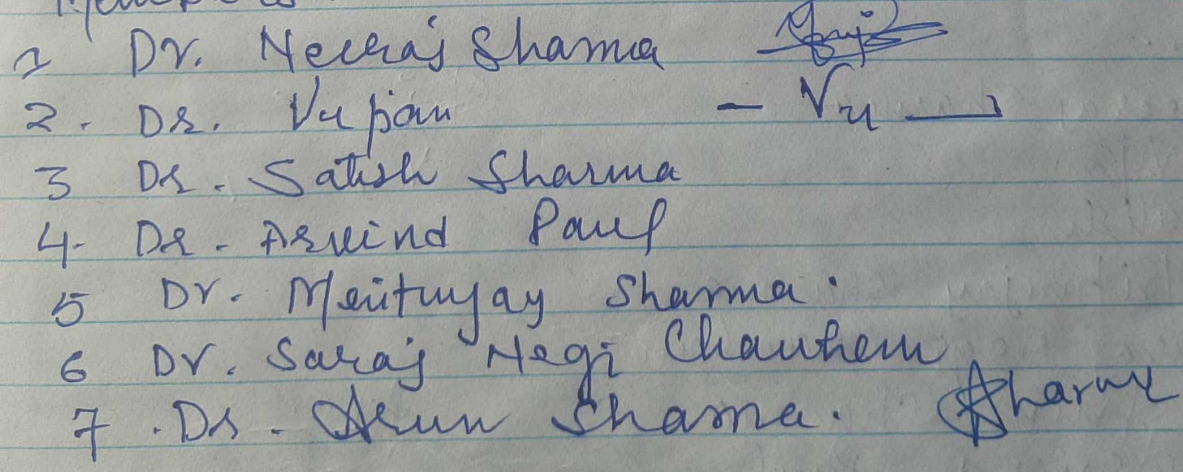 Members
1 Dr. Neeraj Sharma
2. Dr. Vipan - Vi
3 Dr. Satish Sharma
4. Dr. Arvind Paul
5 Dr. Mritunjay Sharma.
6 Dr. Saraj Negi Chauhan
7. Dr. Arun Sharma. ASharma